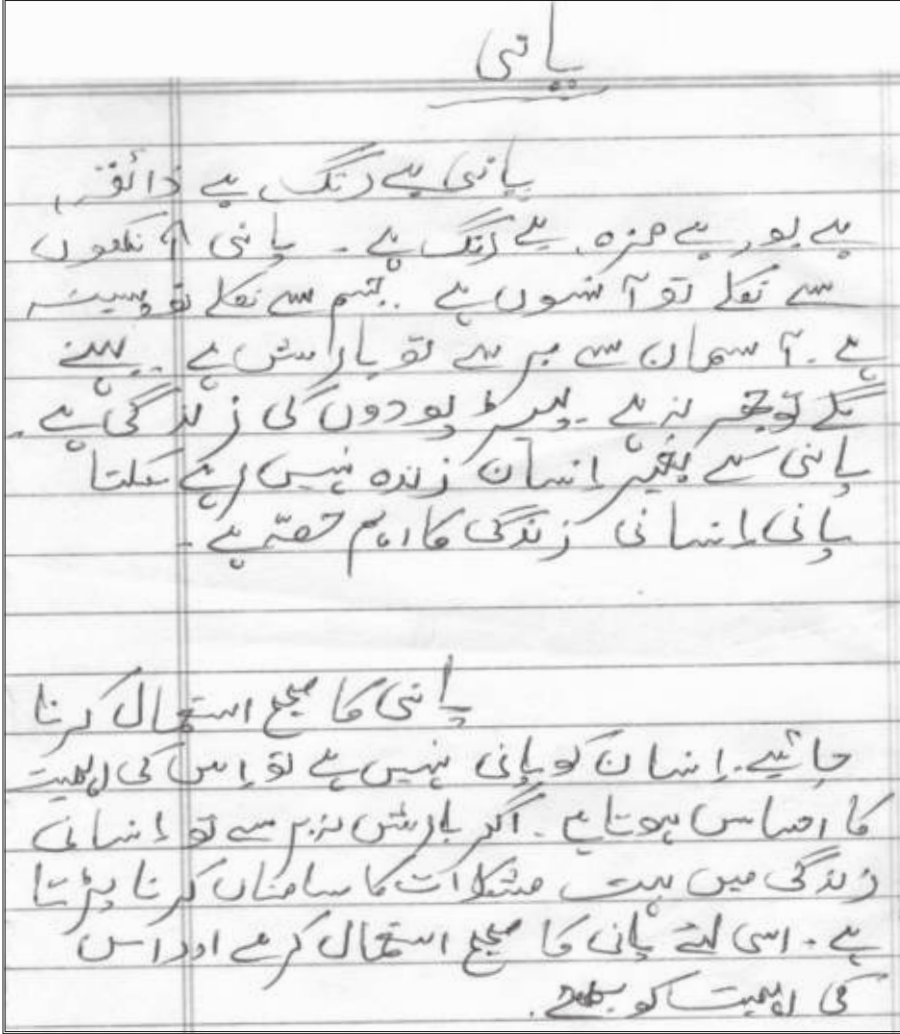 پانی
پانی بے رنگ بے ذائقہ
بے بو، بے مزہ، بے رنگ ہے۔ پانی آنکھوں
سے نکلے تو آنسوں ہے۔ جسم سے نکلے تو پسینہ
ہے۔ آسمان سے برسے تو بارش ہے۔ بہنے
لگے تو جھرنہ ہے۔ پیڑ پودوں کی زندگی ہے۔
پانی کے بغیر انسان زندہ نہیں رہے سکتا
پانی اِنسانی زندگی کا اہم حصّہ ہے۔
پانی کا صحیح استعمال کرنا
چائیے۔ اِنسان کو پانی نہیں ہے تو اِس کی اہمیت
کا احساس ہوتا ہے۔ اگر بارش نہ برسے تو اِنسانی
زندگی میں بہت مشکلات کا سامناں کرنا پڑتا
ہے۔ اسی لئے پانی کا صحیح استعمال کرے اور اس
کی اہمیت کو سمجھے۔